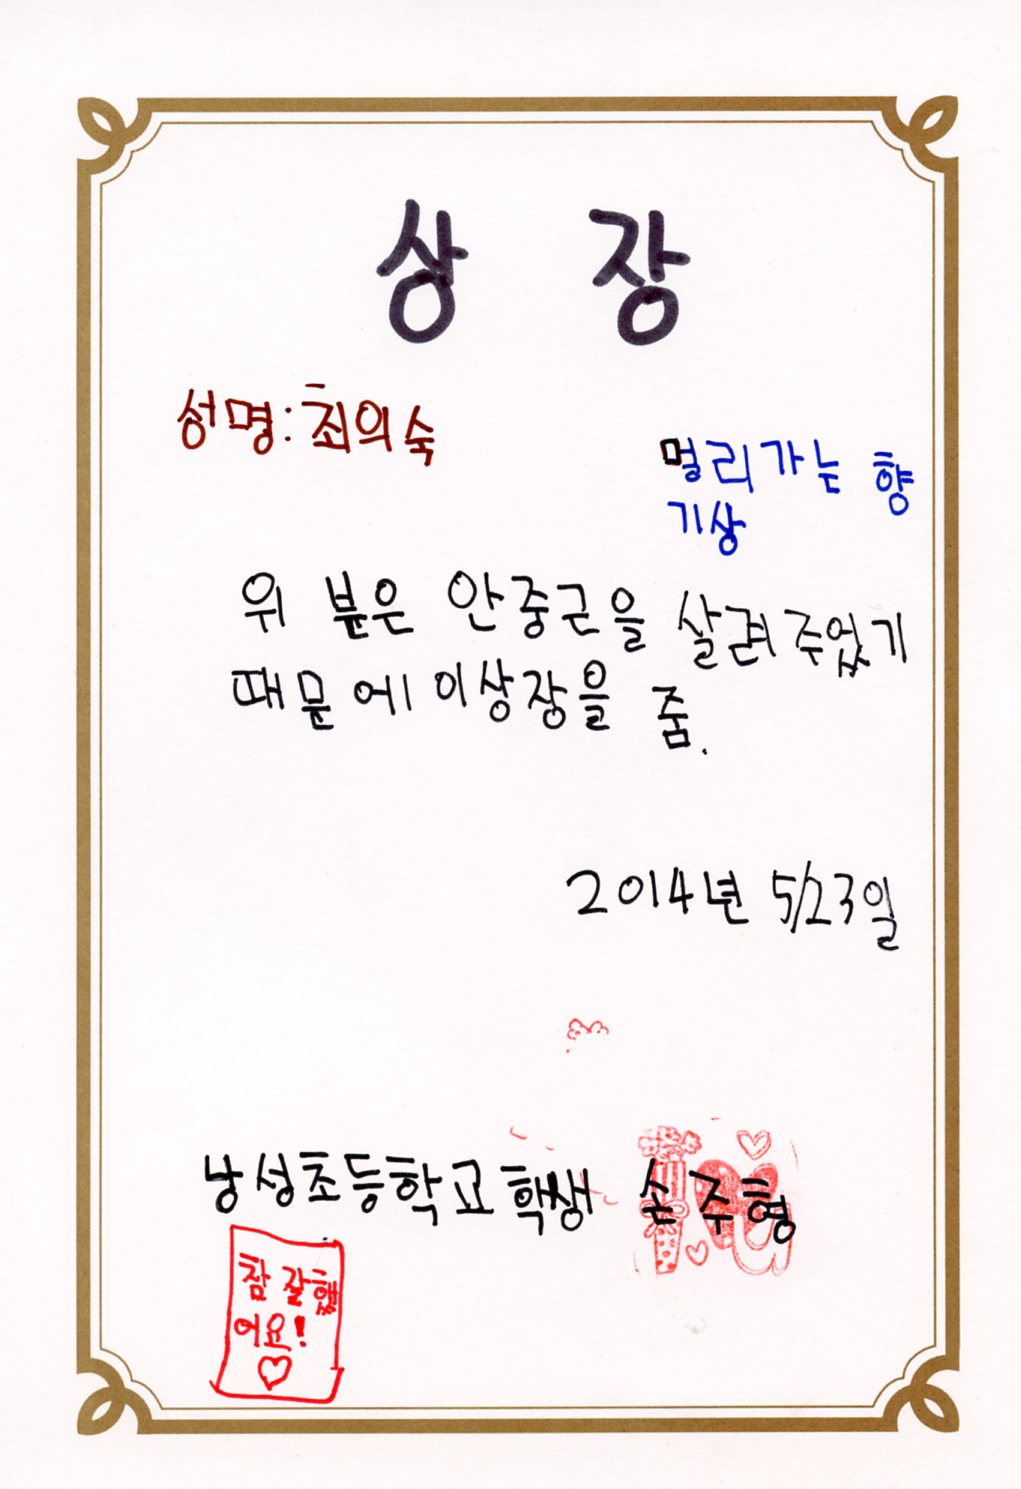 상 장
성명:최의숙
멀리가는 향
기상
위 분은 안중근을 살려주었기
때문에 이상장을 줌.
2014년 5/23일
낭성초등학교 학생 손주형
참 잘했
어요!